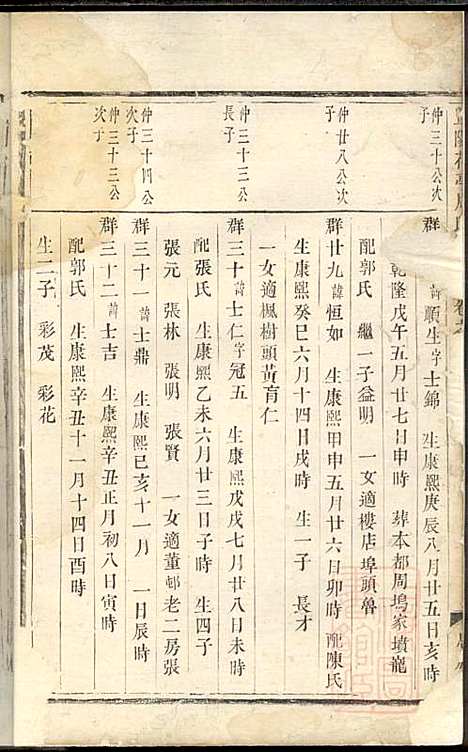 仲三十公次子
群 諱順生字士錦 生康熙庚辰八月廿五日亥時
乾隆戊午五月廿七日申時 葬本都周塢家墳龍
配郭氏 繼一子益明 一女適樓店埠頭魯
仲廿八公次子
群廿九諱恒如 生康熙甲申五月廿六日卯時 配陳氏
生康熙癸巳六月十四日戌時 生一子 長才
一女適楓樹頭黃育仁
仲三十三公長子
群三十諱士仁字冠五 生康熙戊戌七月廿八日未時
配張氏 生康熙乙未六月廿三日子時 生四子
張元 張林 張明 張賢 一女適董邨老二房張
仲三十四公次子
群三十一諱士鼎 生康熙己亥十一月 一日辰時
仲三十三公次子
群三十二諱士吉 生康熙辛丑正月初八日寅時
配郭氏 生康熙辛丑十一月十四日酉時
生二子 彩茂 彩花